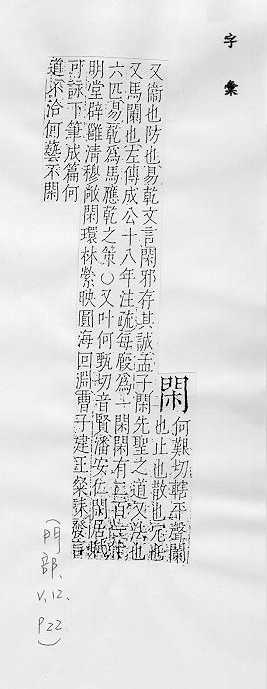 字彙
閑
何艱切轄平聲闌
也止也散也冗也
又衞也防也易乾文言閑邪存其誠孟子閑先聖之道又法也
又馬闌也左傳成公十八年注疏每廄爲一閑閑有二百一十
六匹易乾爲馬應乾之策○又叶何甄切音賢潘安仁閑居賦
明堂辟雝清穆敞閑環林縈映圓海回淵曹子建王粲誄發言
可詠下筆成篇何
道不洽何藝不閑
(門部、V.12、P22)